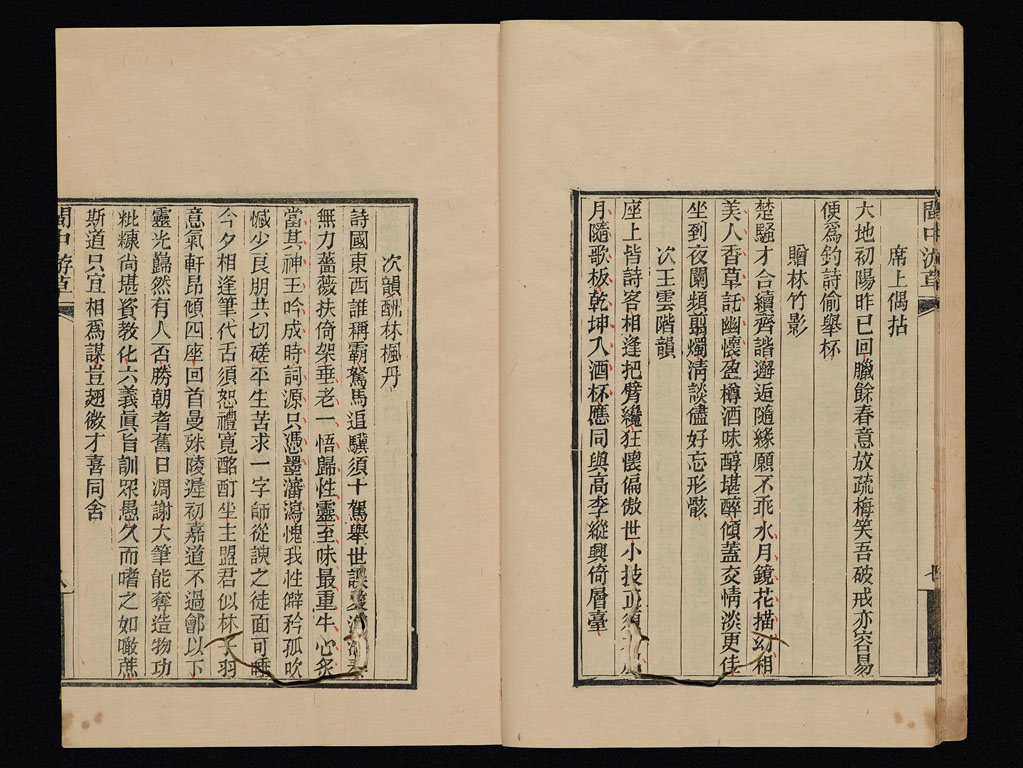 閩中游草
席上偶拈
大地初陽昨已回臘餘春意放疏梅笑吾破戒亦容易
便為釣詩偷舉杯
贈林竹影
楚騷才合續齊諧邂逅隨緣願不乖水月鏡花描幻相
美人香草託幽懷盈樽酒味醇堪醉傾蓋交情淡更佳
坐到夜闌頻翦燭清談儘好忘形骸
次王雲階韻
座上皆詩客相逢把臂纔狂懷偏傲世小技正須
月隨歌板乾坤入酒杯應同與高李縱興倚層臺
次韻酬林楓丹
詩國東西誰稱霸駑馬追驥須十駕舉世誤
無力薔薇扶倚架垂老一悟歸性靈至味最重牛心炙
當其神王吟成時詞源只憑墨瀋瀉愧我性僻矜孤吹
憾少良朋共切磋平生苦求一字師從諛之徒面可唾
今夕相逢筆代舌須恕禮寬酩酊坐主盟君似林天羽
意氣軒昂傾四座回首曼殊陵遲初嘉道不過鄶以下
靈光巋然有人否勝朝耆舊日凋謝大筆能奪造物功
粃糠尚堪資教化六義眞旨訓眾愚久而嗜之如噉蔗
斯道只宜相為謀豈翅微才喜同舍
閩中游草